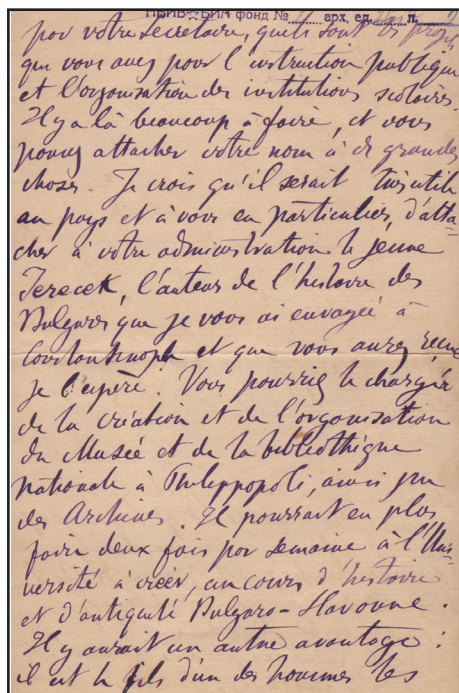 НБИВ БИА фонд № арх. ед. л.
par votre secretaire, quels sont les projets
que vous avez pour l'instruction publique
et l'organisation des institutions scolaires.
Il y a là beaucoup à faire, et vous
pouvez attacher votre nom à de grandes
choses. Je crois qu'il serait très utile
au pays et à vous en particulier, d'atta-
cher à votre administration le jeune
Jerecek, l'auteur de l'histoire des
Bulgares que je vous ai envoyée à
Constantinople et que vous aurez reçue
je l'espère. Vous pourriez le charger
de la création et de l'organisation
du Musée et de la bibliothèque
nationale à Philippopoli, ainsi que
des Archives. Il pourrait en plus
faire deux fois par semaine à l'Uni-
versité à créer, un cours d'histoire
et d'antiquité Bulgaro-Slavonne.
Il y aurait un autre avantage :
il est le fils d'un des hommes les